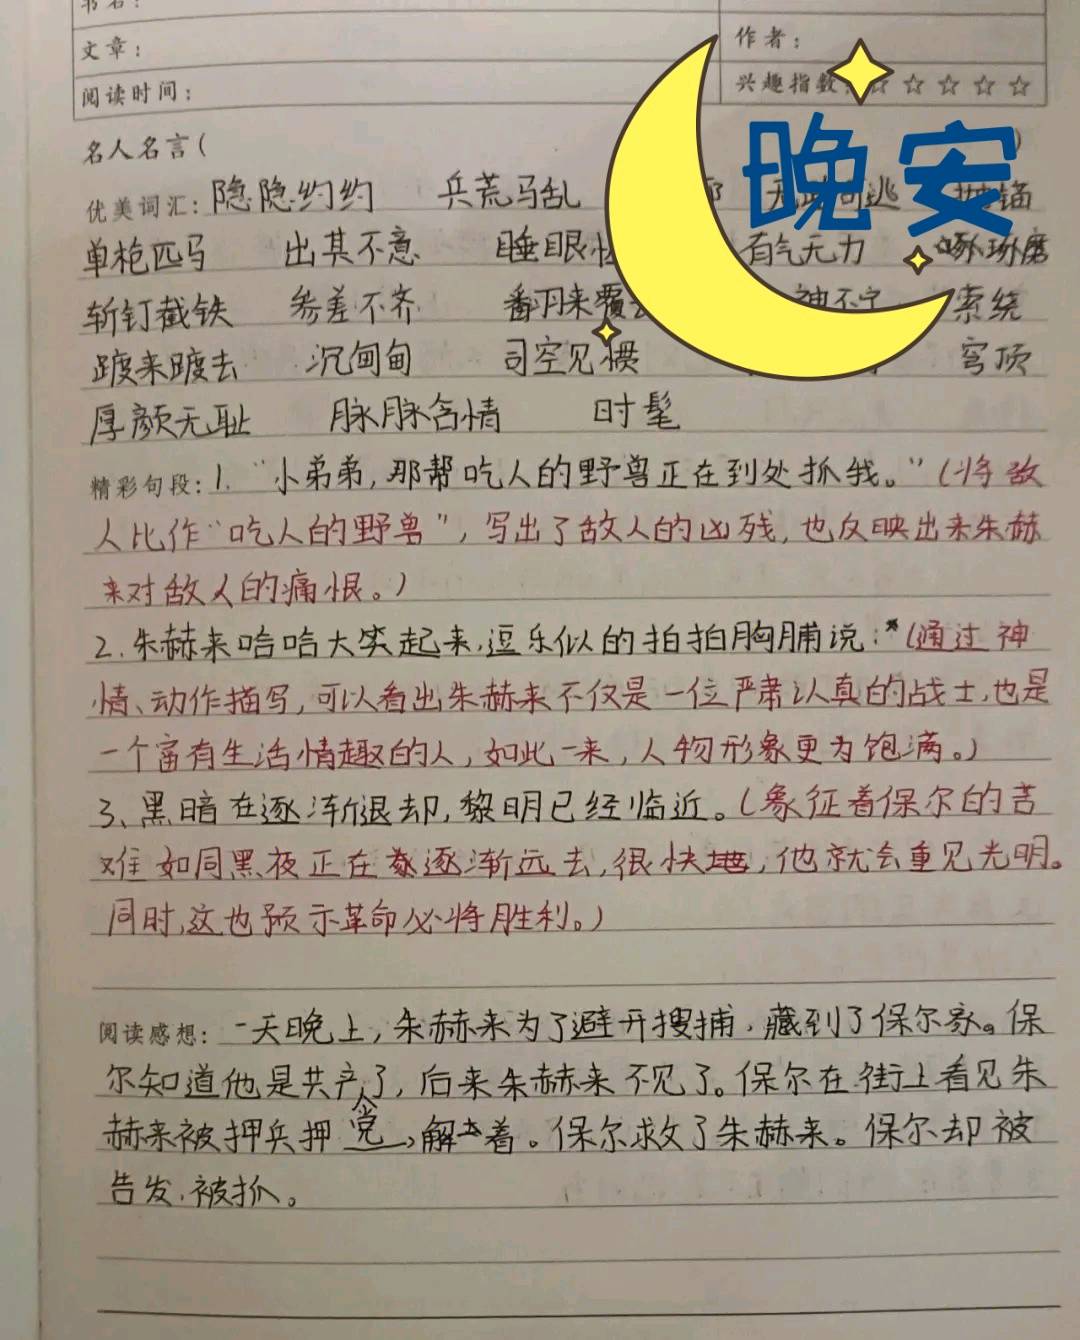 书名:
文章:
作者:
阅读时间:
兴趣指数: ☆ ☆ ☆ ☆ ☆
晚安
名人名言( )
优美词汇: 隐隐约约 兵荒马乱 无 逃 锚
单枪匹马 出其不意 睡眼 有气无力 啄琢磨
斩钉截铁 参差不齐 翻来覆 神不宁 萦绕
踱来踱去 沉甸甸 司空见惯 穹顶
厚颜无耻 脉脉含情 时髦
精彩句段: 1. “小弟弟,那帮吃人的野兽正在到处抓我。”(将敌
人比作“吃人的野兽”,写出了敌人的凶残,也反映出来朱赫
来对敌人的痛恨。)
2.朱赫来哈哈大笑起来,逗乐似的拍拍胸脯说:(通过神
情、动作描写,可以看出朱赫来不仅是一位严肃认真的战士,也是
一个富有生活情趣的人,如此一来,人物形象更为饱满。)
3、黑暗在逐渐退却,黎明已经临近。(象征着保尔的苦
难如同黑夜正在逐渐远去,很快地,他就会重见光明。
同时,这也预示革命必将胜利。)
阅读感想: 一天晚上,朱赫来为了避开搜捕,藏到了保尔家。保
尔知道他是共产党人了,后来朱赫来不见了。保尔在街上看见朱
赫来被押兵押解着。保尔救了朱赫来。保尔却被
告发,被抓。